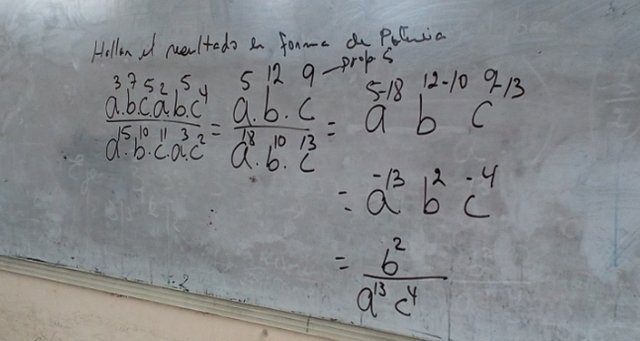 Hallar el resultado en forma de Potencia
a³.b⁷.c⁵.a².b⁵.c⁴ / a¹⁵.b¹⁰.c¹¹.a³.c² = a⁵.b¹².c⁹ / a¹⁸.b¹⁰.c¹³ = a⁵⁻¹⁸ b¹²⁻¹⁰ c⁹⁻¹³
prop. 5
= a⁻¹³ b² c⁻⁴
= b² / a¹³ c⁴